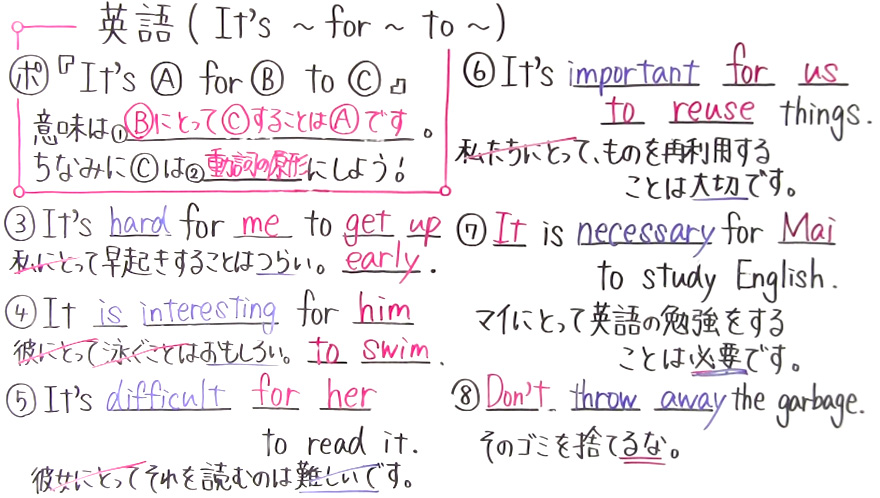 英語 ( It's ~ for ~ to ~ )
ポ『It's Ⓐ for Ⓑ to Ⓒ』
意味は①ⒷにとってⒸすることはⒶです。
ちなみにⒸは②動詞の原形にしよう!
③ It's hard for me to get up
私にとって早起きすることはつらい。 early.
④ It is interesting for him
彼にとって泳ぐことはおもしろい。 to swim.
⑤ It's difficult for her
to read it.
彼女にとってそれを読むのは難しいです。
⑥ It's important for us
to reuse things.
私たちにとって、ものを再利用する
ことは大切です。
⑦ It is necessary for Mai
to study English.
マイにとって英語の勉強をする
ことは必要です。
⑧ Don't throw away the garbage.
そのゴミを捨てるな。